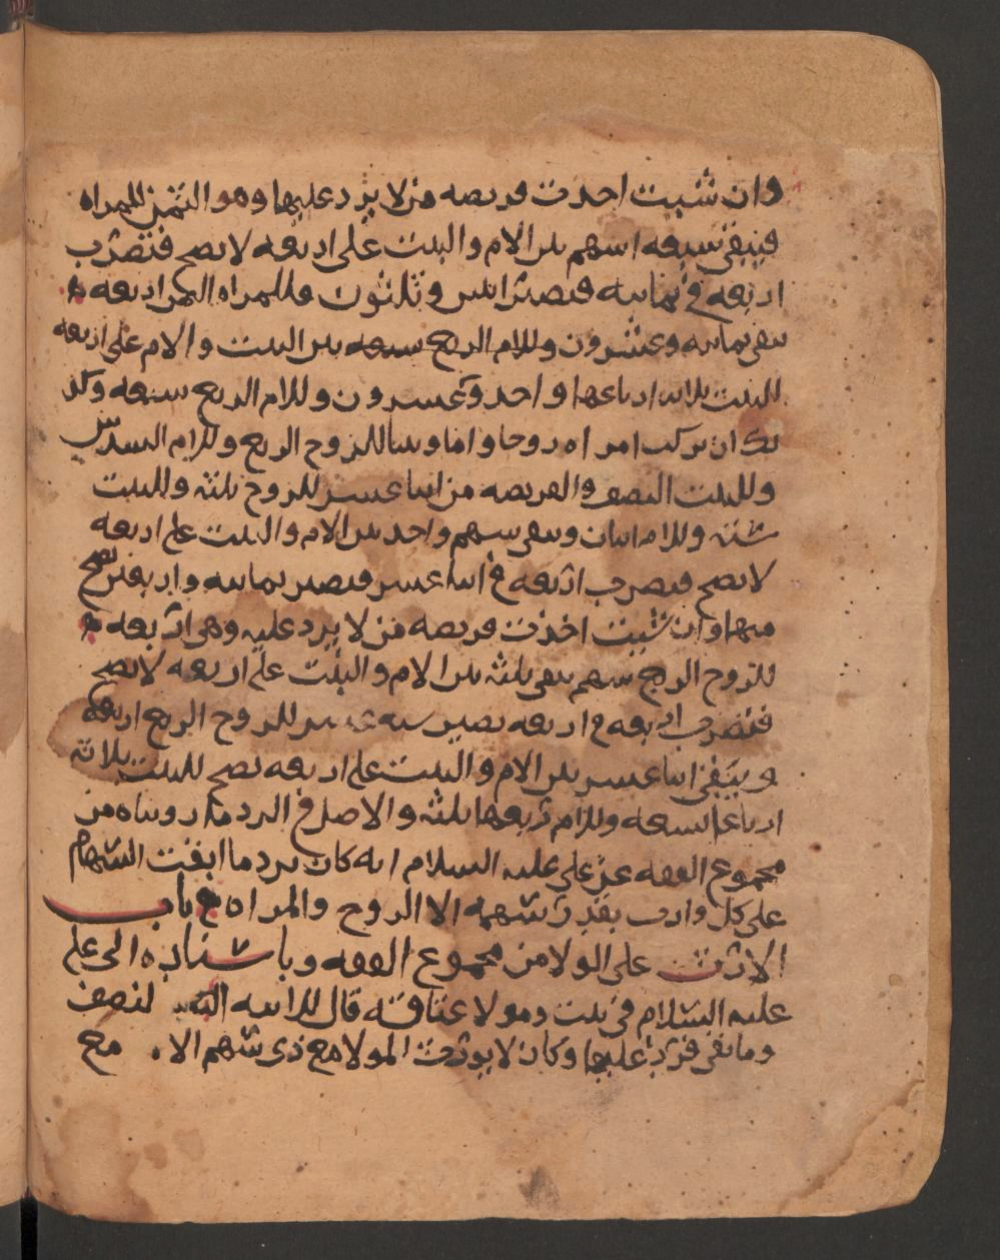 وان شيت احدت فريضه من لا يرد عليها وهو الثمن للمراه
فيبقى سبعه اسهم بين الام والبنت على اربعه لا يصح فتضرب
اربعه في ثمانيه فتصير اثنين وثلثون فللمراه الثمن اربعه
تبقى ثمانيه وعشرون وللام الربع سبعه بين البنت والام على اربعه
للبنت ثلاثه ارباعها واحد وعشرون وللام الربع سبعه وكذ
لك ان تركت امراه زوجا واما وبنتا للزوج الربع وللام السدس
وللبنت النصف والفريضه من اثنا عشر للزوج ثلثه وللبنت
سته وللام اثنان ويبقى سهم واحد بين الام والبنت على اربعه
لا يصح فيضرب اربعه في اثنا عشر فتصير ثمانيه واربعين تصح
منها وان شيت اخذت فريضه من لا يرد عليه وهى اربعه
للزوج الربع سهم يبقى ثلثه بين الام والبنت على اربعه لا يصح
فتضرب اربعه في اربعه تصير سته عشر للزوج الربع اربعه
ويبقى اثنا عشر بين الام والبنت على اربعه تصح للبنت ثلاثه
ارباعها تسعه وللام ربعها ثلثه والاصل في الرد ما رويناه من
مجموع الفقه عن على عليه السلام انه كان يرد ما ابقت السهام
على كل وارث بقدر سهمه الا الزوج والمراه باب
الارث على الولا من مجموع الفقه وباسناده الى على
عليه السلام في بنت ومولا عتاقه قال للابنه النصف
وما بقى فرد عليها وكان لا يورث المولا مع ذى سهم الا مع